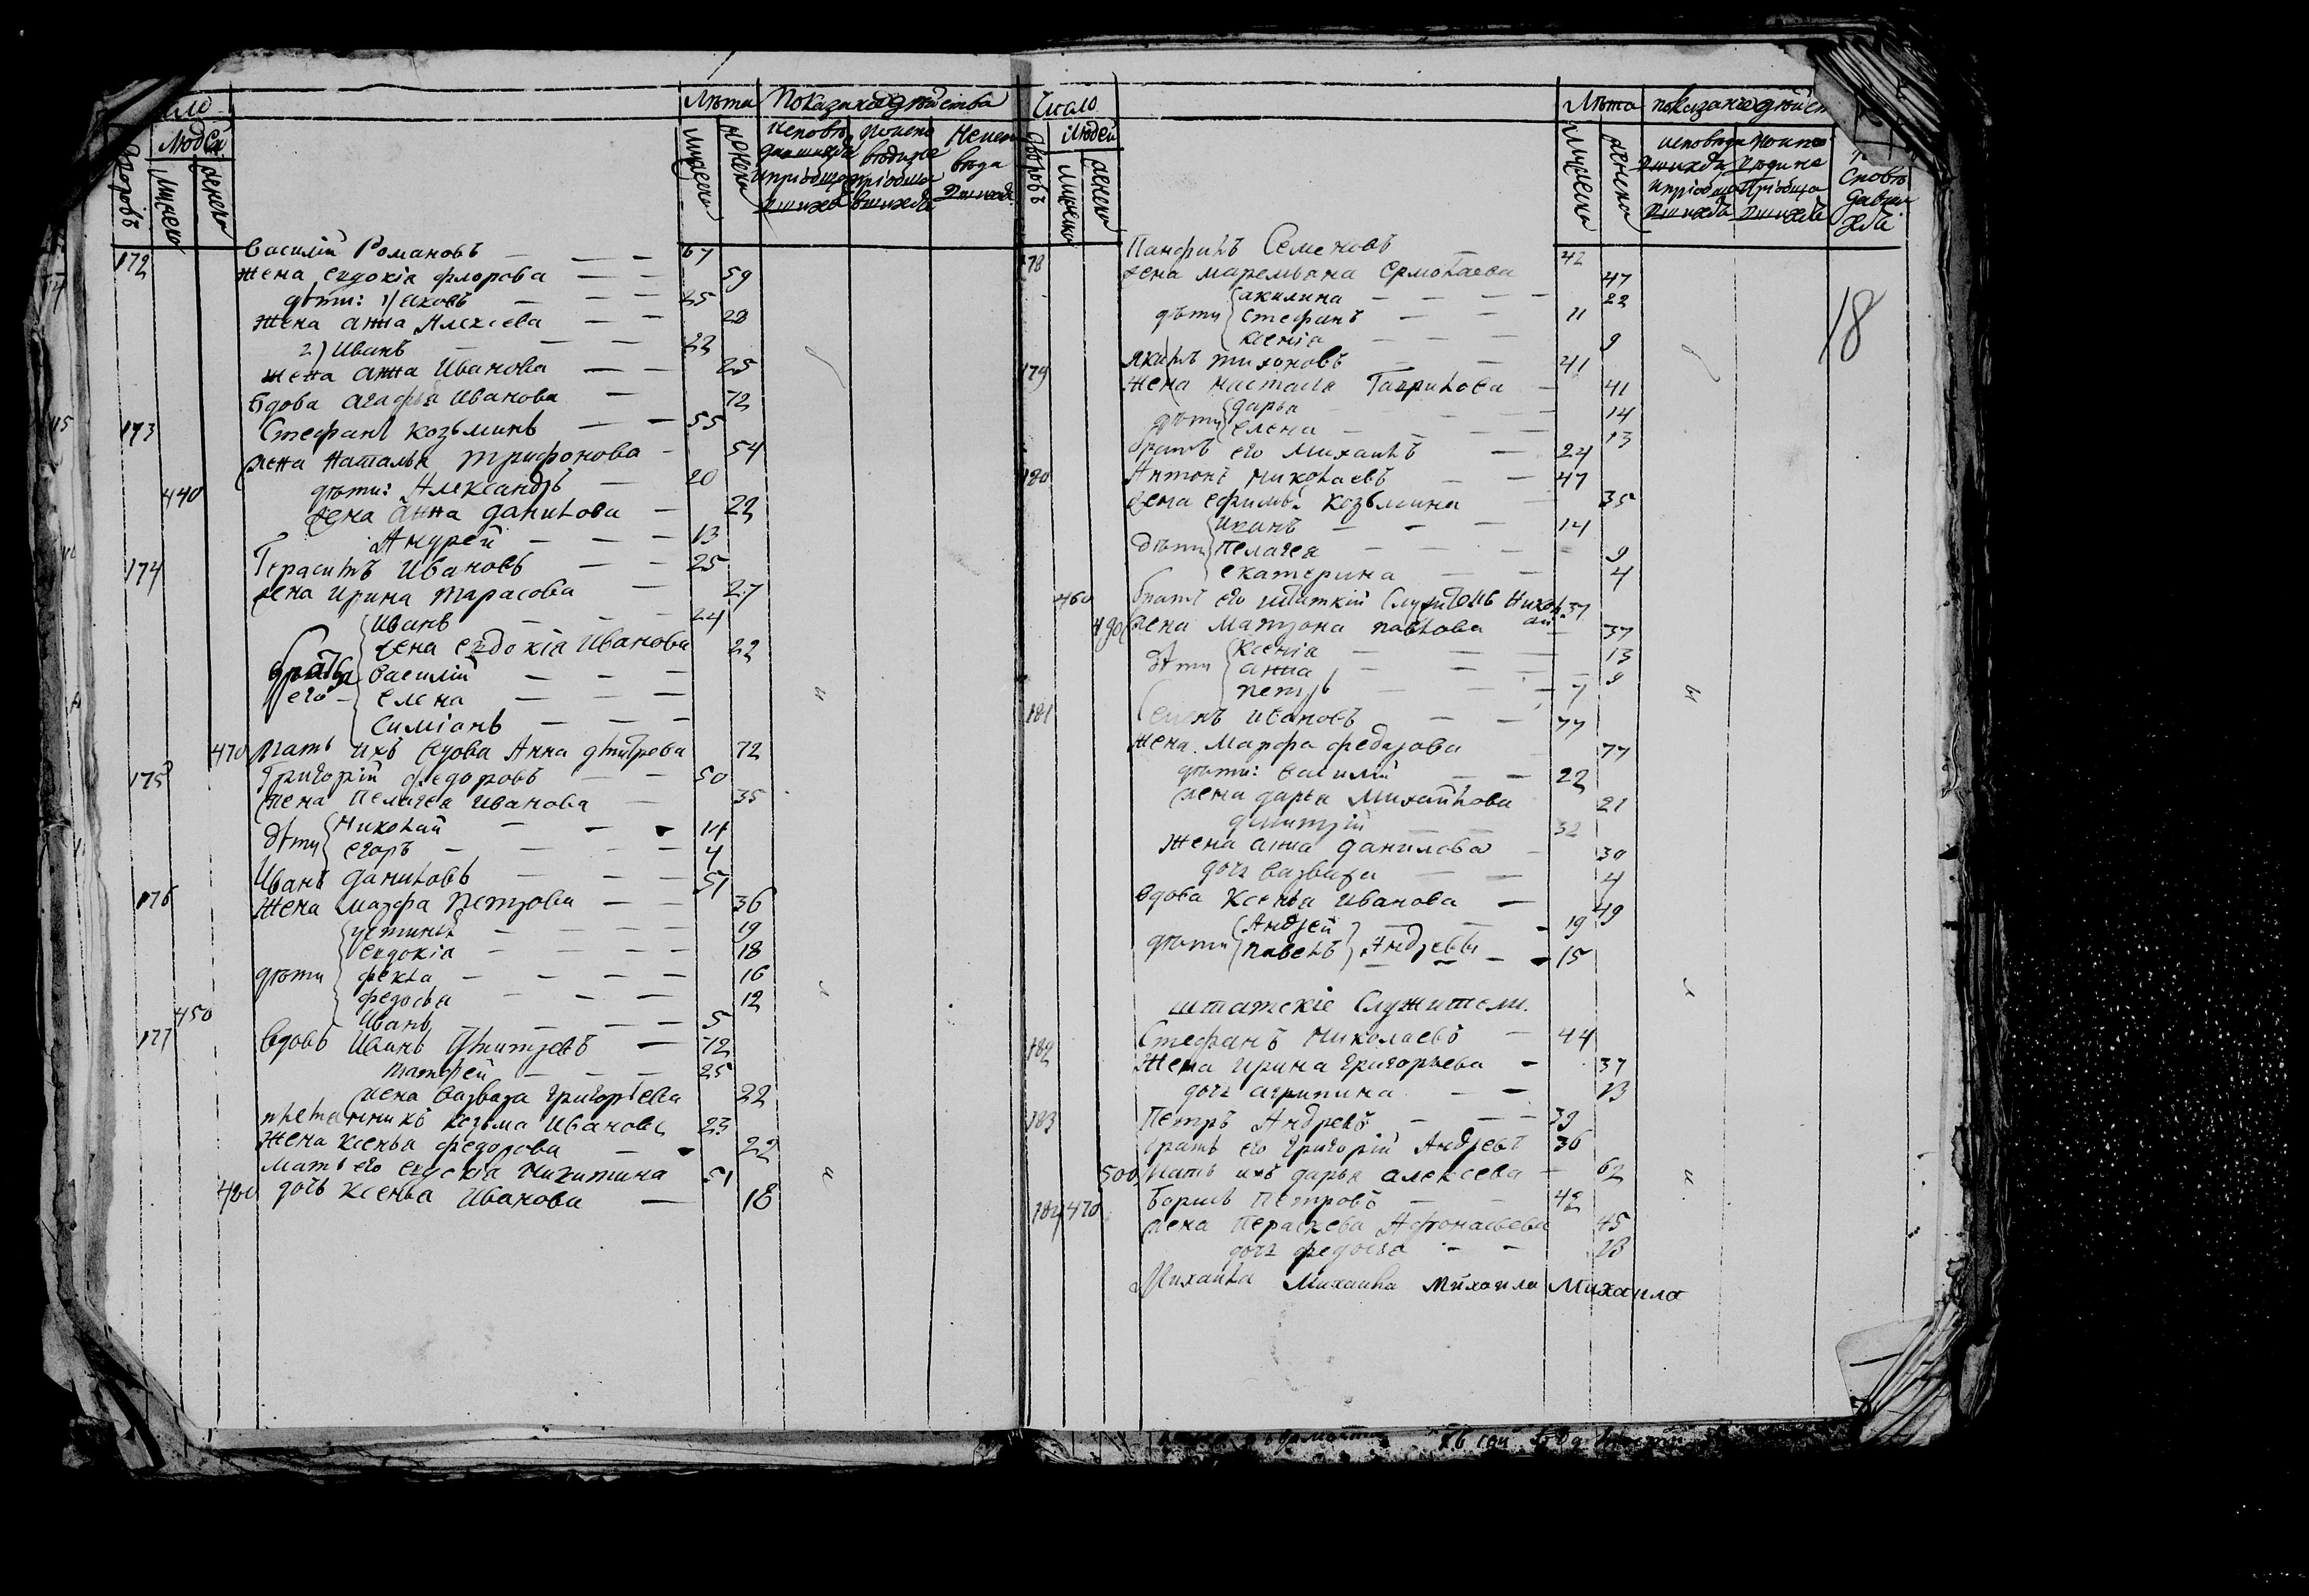 Лѣта Показаніе дѣйства
Людей
Дворовъ
Мужеска
Женска
Мужеска
Женска
172 Василій Романовъ — — — 67
жена евдокія флорова — — 59
дѣти: 1) яковъ — — — 25
жена анна Алексѣева — — 28
2) Иванъ — — — 22
жена анна Иванова — — 25
вдова агафья Иванова — 72
173 Стефанъ козьминъ — — 55
жена Наталья трифонова — 54
440 дѣти: Александръ — 20
жена анна данилова — 22
Андрей — — — 13
174 Герасимъ Ивановъ — — 25
жена ирина тарасова — 27
Иванъ — — 24
жена евдокія Иванова 22
братья его
Василій — — —
елена — — —
Симіонъ — — —
470 мать ихъ вдова Анна дмитрева 72
175 Григорій федоровъ — — 50
жена пелагея иванова — 35
дѣти
николай — — — 14
егоръ — — — — 4
176 Иванъ даниловъ — — — 51
жена марфа петрова — — 36
устинья — — — — 19
евдокіа — — — — 18
дѣти фекла — — — — 16
федосья — — — 12
450 Иванъ — — — — 5
177 вдовъ Иванъ дмитревъ — 72
матфей — — — 25
жена варвара григорьева 22
племянникъ козьма Ивановъ 23
жена ксенья федорова — 22
мать его евдокіа никитина 51
480 дочь ксенья Иванова — 18
Число
Людей
Дворовъ
Мужеска
Женска
Лѣта показаніе дѣйст
Мужеска
Женска
18
178 Панфилъ Семеновъ — 42
жена маремьяна Ермолаева 47
акилина — — — — 22
дѣти стефанъ — — 11
ксенія — — — 9
179 якимъ тихоновъ — — 41
жена настасья Гаврилова — 41
дарья — — — 14
дѣти елена — — — 13
братъ его Михаилъ — 24
180 Антонъ николаевъ — — 47
жена ефимья козьмина — 35
иванъ — — — 14
дѣти пелагея — — — 9
екатерина — — 4
460 братъ его штаткій служитель Никол 37
490 жена матрона павлова 37
ксенія — — — 13
дѣти анна — — — 9
петръ — — — 7
181 Семенъ ивановъ — — 77
жена марфа федорова 77
дѣти: василій — — 22
жена дарья михайлова 21
дмитрій — — 32
жена анна данилова — 30
дочь варвара — — 4
вдова Ксенья иванова — 49
дѣти
Андрей — — 19
павелъ Андреевы — — 15
штатскіе Служители.
182 Стефанъ николаевъ — 44
жена ирина григорьева — 37
дочь агрипина — — 13
183 Петръ Андревъ — — — 39
братъ его григорій Андреевъ 36
500 мать ихъ дарья алексева — 62
184 470 Борисъ Петровъ — — 42
жена Параскева Афонасьева 45
дочь федосья — — 13
Михаила Михаила Михаила Михаила